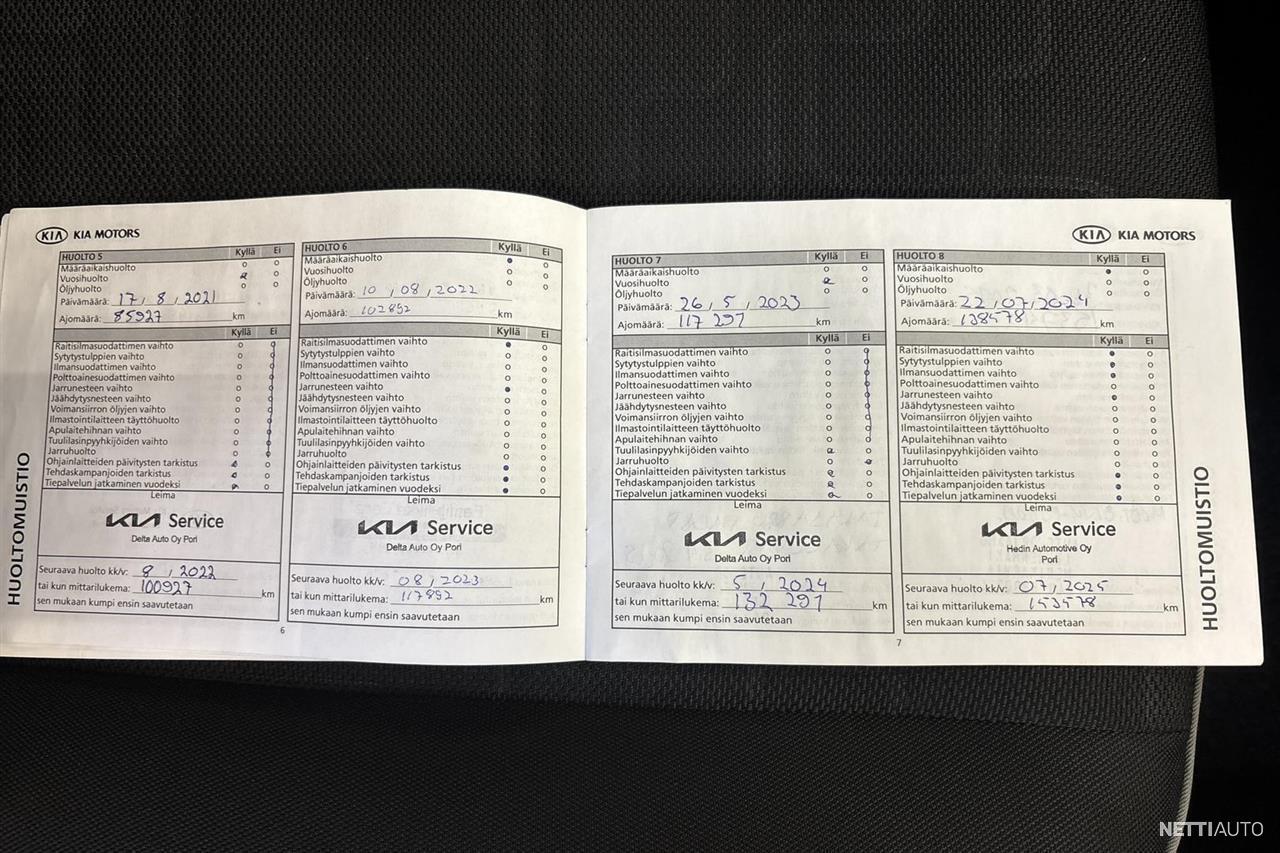 KIA KIA MOTORS
HUOLTOMUISTIO
HUOLTO 5 Kyllä Ei
Määräaikaishuolto
Vuosihuolto
Öljyhuolto
Päivämäärä: 17, 8, 2021
Ajomäärä: 85927 km
Kyllä Ei
Raitisilmasuodattimen vaihto
Sytytystulppien vaihto
Ilmansuodattimen vaihto
Polttoainesuodattimen vaihto
Jarrunesteen vaihto
Jäähdytysnesteen vaihto
Voimansiirron öljyjen vaihto
Ilmastointilaitteen täyttöhuolto
Apulaitehihnan vaihto
Tuulilasinpyyhkijöiden vaihto
Jarruhuolto
Ohjainlaitteiden päivitysten tarkistus
Tehdaskampanjoiden tarkistus
Tiepalvelun jatkaminen vuodeksi
Leima
KIA Service
Delta Auto Oy Pori
Seuraava huolto kk/v: 8, 2022
tai kun mittarilukema: 100927 km
sen mukaan kumpi ensin saavutetaan
HUOLTO 6 Kyllä Ei
Määräaikaishuolto
Vuosihuolto
Öljyhuolto
Päivämäärä: 10, 08, 2022
Ajomäärä: 102892 km
Kyllä Ei
Raitisilmasuodattimen vaihto
Sytytystulppien vaihto
Ilmansuodattimen vaihto
Polttoainesuodattimen vaihto
Jarrunesteen vaihto
Jäähdytysnesteen vaihto
Voimansiirron öljyjen vaihto
Ilmastointilaitteen täyttöhuolto
Apulaitehihnan vaihto
Tuulilasinpyyhkijöiden vaihto
Jarruhuolto
Ohjainlaitteiden päivitysten tarkistus
Tehdaskampanjoiden tarkistus
Tiepalvelun jatkaminen vuodeksi
Leima
KIA Service
Delta Auto Oy Pori
Seuraava huolto kk/v: 08, 2023
tai kun mittarilukema: 117892 km
sen mukaan kumpi ensin saavutetaan
6
KIA KIA MOTORS
HUOLTO 7 Kyllä Ei
Määräaikaishuolto
Vuosihuolto
Öljyhuolto
Päivämäärä: 26, 5, 2023
Ajomäärä: 117 291 km
Kyllä Ei
Raitisilmasuodattimen vaihto
Sytytystulppien vaihto
Ilmansuodattimen vaihto
Polttoainesuodattimen vaihto
Jarrunesteen vaihto
Jäähdytysnesteen vaihto
Voimansiirron öljyjen vaihto
Ilmastointilaitteen täyttöhuolto
Apulaitehihnan vaihto
Tuulilasinpyyhkijöiden vaihto
Jarruhuolto
Ohjainlaitteiden päivitysten tarkistus
Tehdaskampanjoiden tarkistus
Tiepalvelun jatkaminen vuodeksi
Leima
KIA Service
Delta Auto Oy Pori
Seuraava huolto kk/v: 5, 2024
tai kun mittarilukema: 132 291 km
sen mukaan kumpi ensin saavutetaan
HUOLTO 8 Kyllä Ei
Määräaikaishuolto
Vuosihuolto
Öljyhuolto
Päivämäärä: 22, 07, 2024
Ajomäärä: 138578 km
Kyllä Ei
Raitisilmasuodattimen vaihto
Sytytystulppien vaihto
Ilmansuodattimen vaihto
Polttoainesuodattimen vaihto
Jarrunesteen vaihto
Jäähdytysnesteen vaihto
Voimansiirron öljyjen vaihto
Ilmastointilaitteen täyttöhuolto
Apulaitehihnan vaihto
Tuulilasinpyyhkijöiden vaihto
Jarruhuolto
Ohjainlaitteiden päivitysten tarkistus
Tehdaskampanjoiden tarkistus
Tiepalvelun jatkaminen vuodeksi
Leima
KIA Service
Hedin Automotive Oy
Pori
Seuraava huolto kk/v: 07, 2025
tai kun mittarilukema: 153578 km
sen mukaan kumpi ensin saavutetaan
7
HUOLTOMUISTIO
NETTIAUTO